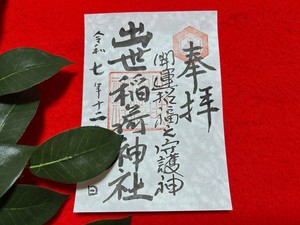 奉拝
開運招福之守護神
出世稲荷神社
令和七年十二
日